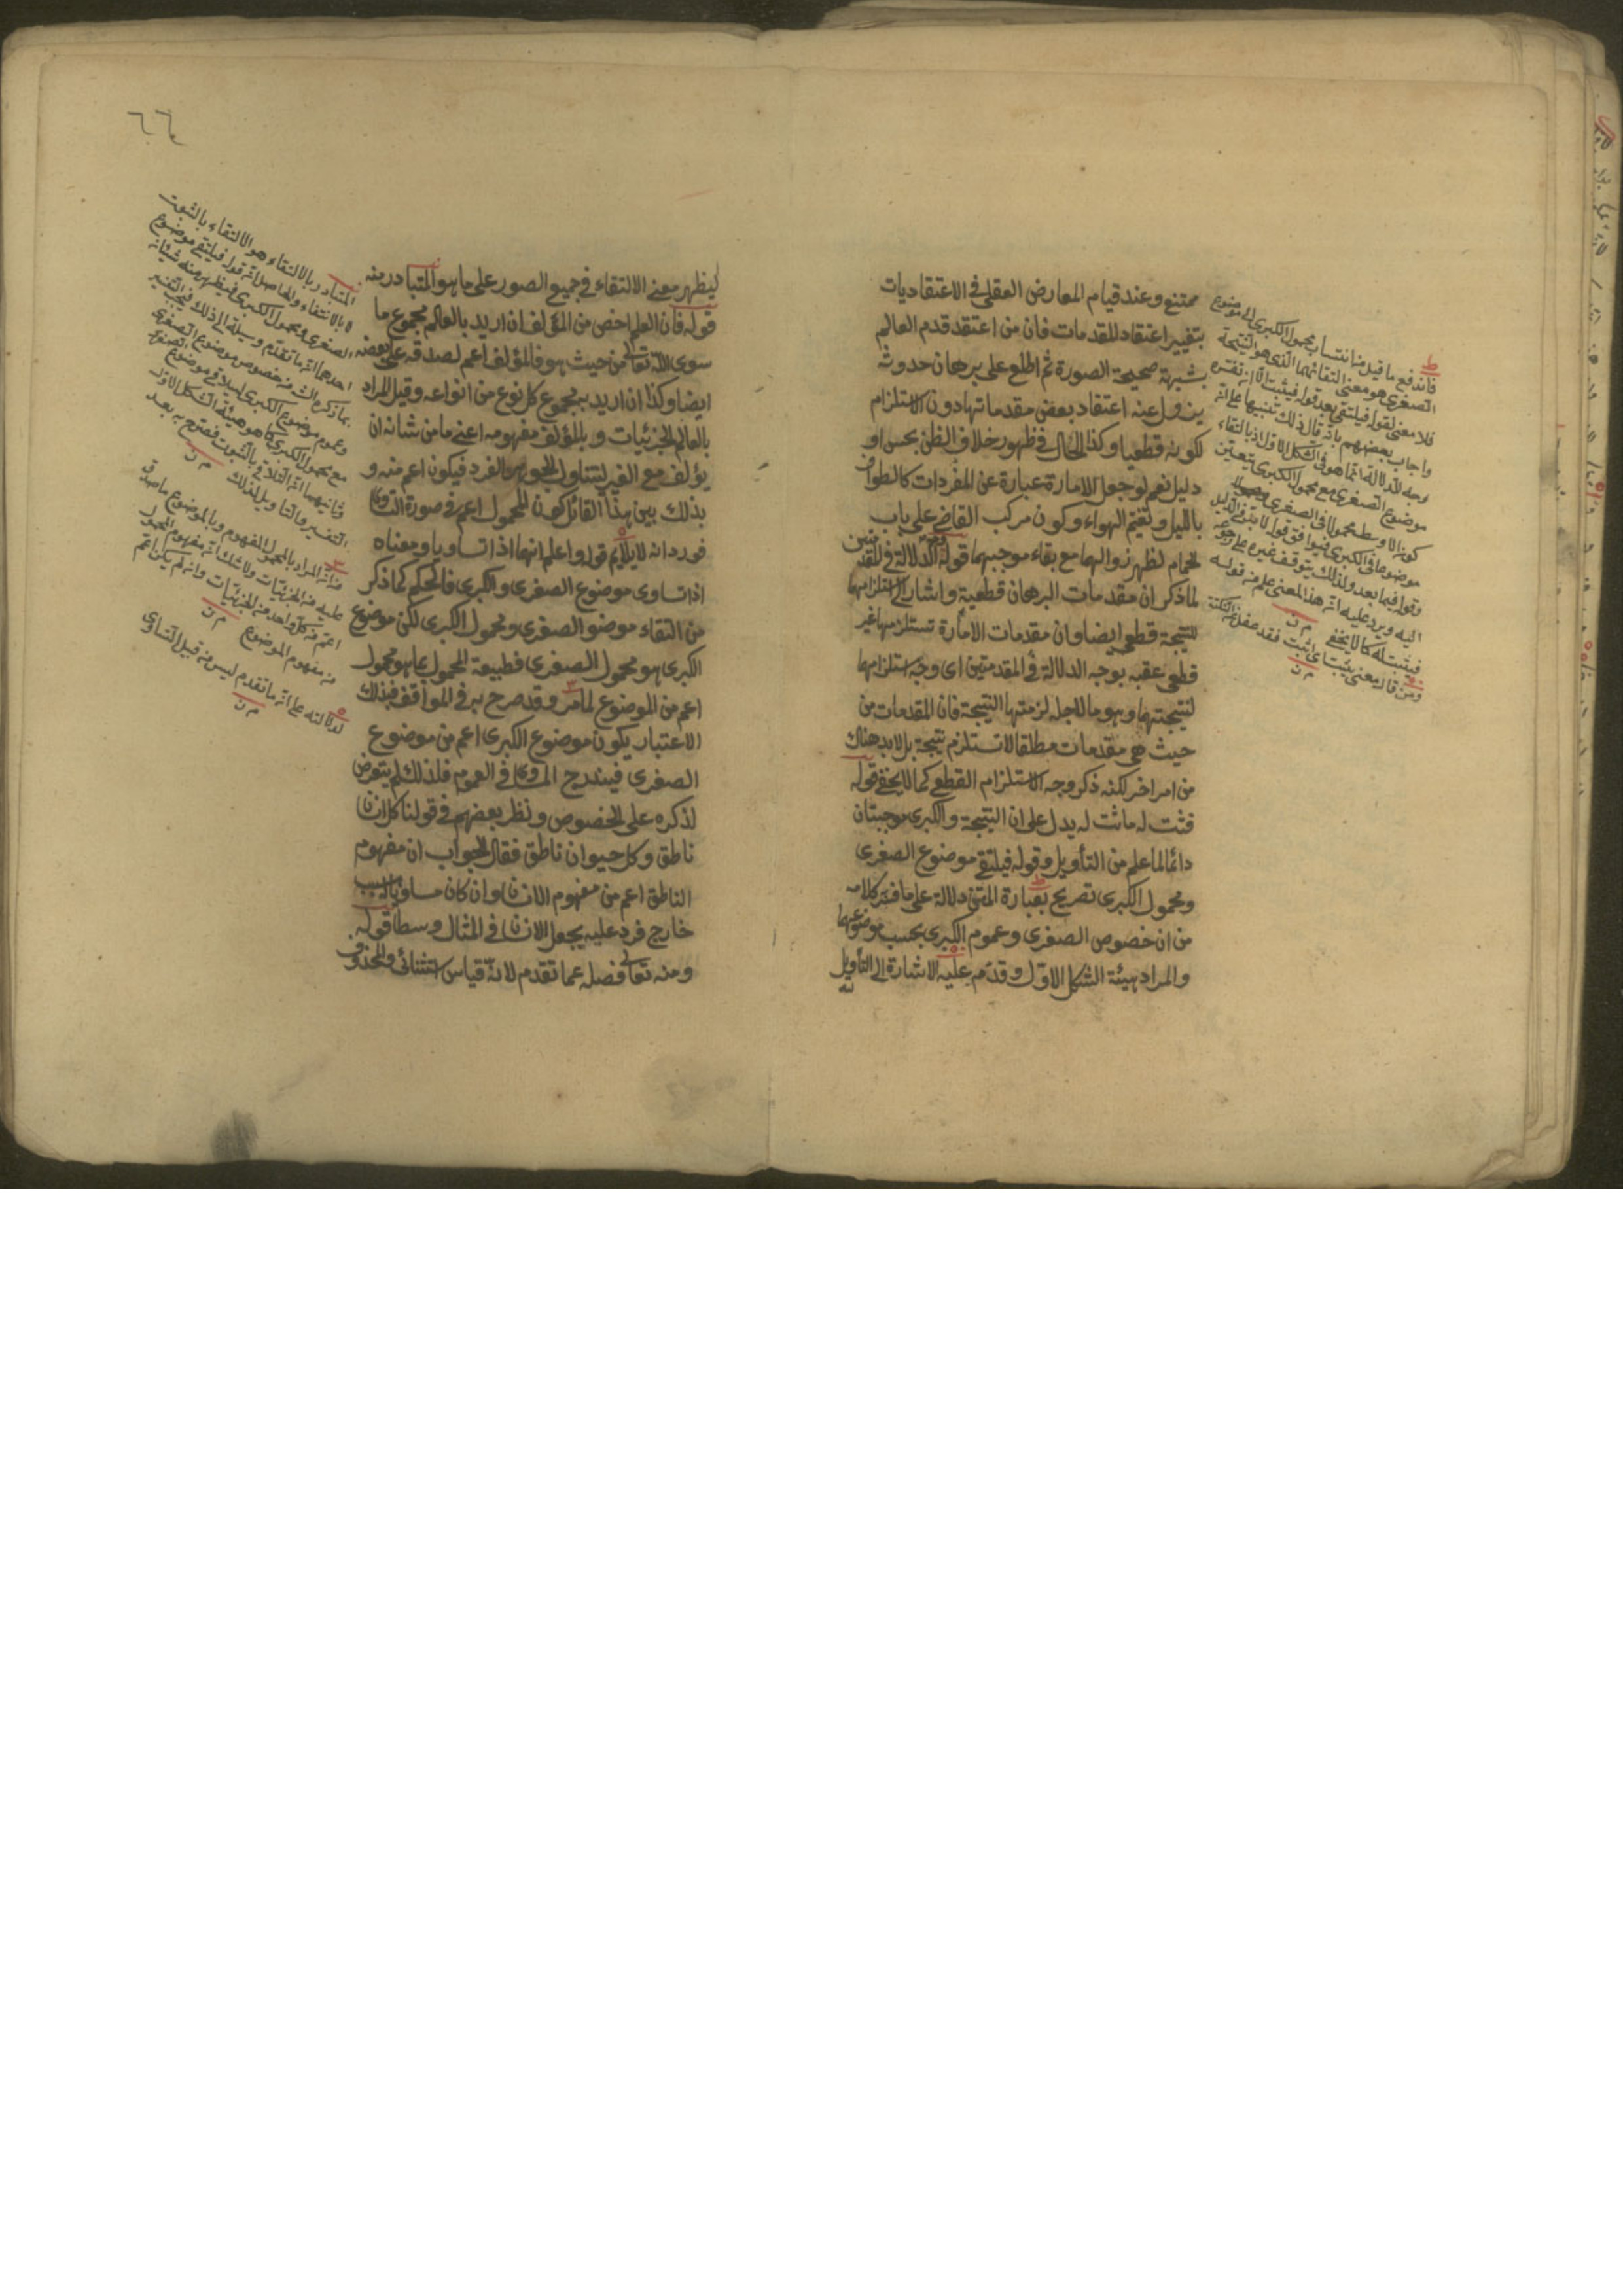 ممتنع وعند قيام المعارض العقلي في الاعتقاديات
بتغيير اعتقاد للمقدمات فان من اعتقد قدم العالم
بشبهة صحيحة الصورة ثم اطلع على برهان حدوثه
يزول عنه اعتقاد بعض مقدماتها دون الاستلزام
لكونه قطعيا وكذا الحال في ظهور خلاف الظن بحس او
دليل نعم لو جعل الامارة عبارة عن المفردات كالطواف
بالليل وتغيم الهواء وكون مركب القاضي على باب
الحمام لظهر زوالهما مع بقاء موجبهما قوله وجه الدلالة في المقدمتين
لما ذكر ان مقدمات البرهان قطعية واشار الى استلزامها
للنتيجة قطعي ايضا وان مقدمات الامارة تستلزمها غير
قطعي عقبه بوجه الدلالة في المقدمتين اى وجه استلزامها
لنتيجتهما وهو ما لاجله لزمتها النتيجة فان المقدمات من
حيث هي مقدمات مطلقا لا تستلزم نتيجة بل لابد هناك
من امر اخر لكنه ذكر وجه الاستلزام القطعي كما لا يخفى قوله
فثبت له ما ثبت له يدل على ان النتيجة والكبرى موجبتان
دائما لما علم من التأويل وقوله فيلتقي موضوع الصغرى
ومحمول الكبرى تصريح بعبارة المتن دلالة على ما فسر كلامه
من ان خصوص الصغرى وعموم الكبرى بحسب موضوعهما
والمراد هيئة الشكل الاول وقدم عليه الاشارة الى التأويل
فاندفع ما قيل من انتساب محمول الكبرى الى موضوع
الصغرى هو معنى التقائهما الذى هو النتيجة
فلا معنى لقوله فيلتقى بعد قوله فيثبت
واجاب بعضهم بانه قال ذلك تنبيها على ان
وجه الدلالة انما هو في الشكل الاول اذ بالتقاء
موضوع الصغرى مع محمول الكبرى يتعين
كون الاوسط محمولا في الصغرى
موضوعا في الكبرى فيوافق قوله
وقوله فيما بعد ولذلك يتوقف غيره على رجوعه
اليه ويرد عليه ان هذا المعنى علم من قوله
فيثبت له كما لا يخفى م ن
ومن قال معنى يثبت اى اثبت فقد غفل عن النكتة
م ن
٦٦
ليظهر معنى الالتقاء في جميع الصور على ما هو المتبادر منه
قوله فان العلم اخص من المؤلف ان اريد بالعالم مجموع ما
سوى الله تعالى من حيث هو فالمؤلف اعم لصدقه على بعضه
ايضا وكذا ان اريد به مجموع كل نوع من انواعه وقيل المراد
بالعالم الجزئيات وبالمؤلف مفهومه اعني ما من شانه ان
يؤلف مع الغير ليتناول الجوهر الفرد فيكون اعم منه و
بذلك بين هذا القائل كون المحمول اعم في صورة التساوي
فورد انه لا يلائم قوله واعلم انهما اذا تساويا ومعناه
اذا تساوى موضوع الصغرى والكبرى فالحكم كما ذكر
من التقاء موضوع الصغرى ومحمول الكبرى لكن موضوع
الكبرى هو محمول الصغرى فطبيعة المحمول بما هو محمول
اعم من الموضوع لما مر وقد صرح به في المواقف فبذلك
الاعتبار يكون موضوع الكبرى اعم من موضوع
الصغرى فيندرج المساوي في العموم فلذلك لم يتعرض
لذكره على الخصوص ونظر بعضهم في قولنا كل انسان
ناطق وكل حيوان ناطق فقال الجواب ان مفهوم
الناطق اعم من مفهوم الانسان وان كان مساويا بسبب
خارج فرد عليه بجعل الانسان في المثال وسطا قوله
ومنه تعالى فصله عما تقدم لانه قياس استثنائي والمحذوف
المتبادر بالالتقاء هو الالتقاء بالثبوت
لا بالانتفاء والحاصل ان قوله فيلتقي موضوع
الصغرى ومحمول الكبرى فيظهر منه شيئان
احدهما ان ما تقدم وسيلة الى ذلك فيجب التفسير
بما ذكره الشارح من خصوص موضوع الصغرى
وعموم موضوع الكبرى ليلاقي موضوع الصغرى
مع محمول الكبرى كما هو هيئة الشكل الاول
وثانيهما ان التلاقي بالثبوت فصرح به بعد
التفسير والتاويل لذلك م ن
من ان المراد بالمحمول المفهوم وبالموضوع ما صدق
عليه من الجزئيات ولا شك ان مفهوم المحمول
اعم من كل واحد من الجزئيات وان لم يكن اعم
من مفهوم الموضوع م ن
لدلالته على ان ما تقدم ليس من قبيل التساوى
م ن